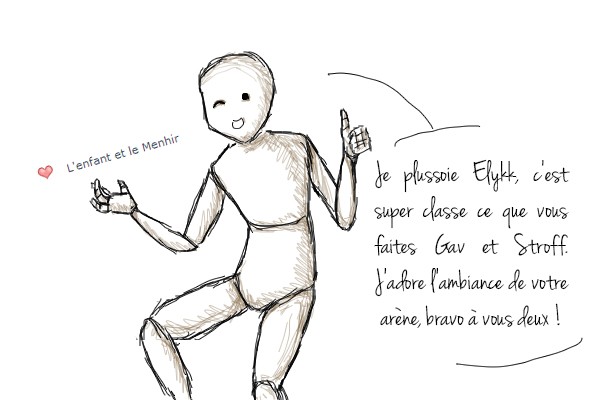 L'enfant et le Menhir
Je plussoie Elykk, c'est
super classe ce que vous
faites Gav et Stroff.
J'adore l'ambiance de votre
arène, bravo à vous deux !